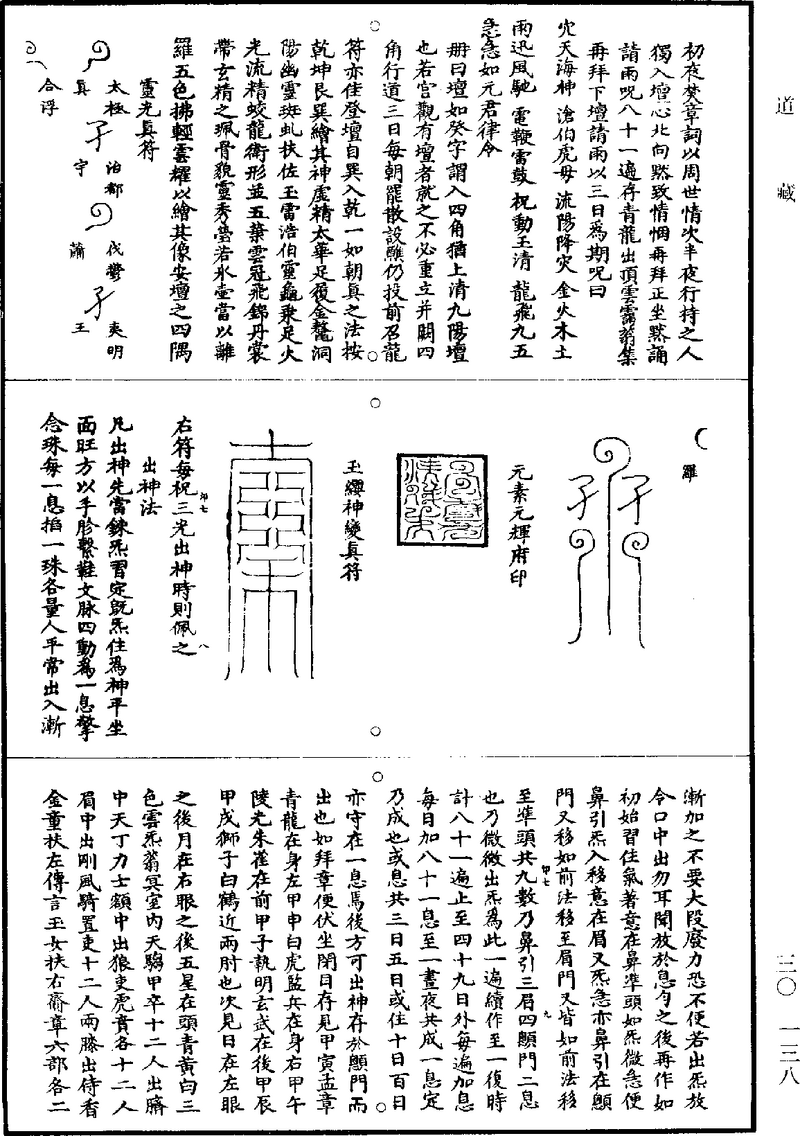 道藏
三〇 一三八
初夜焚章詞以周世情次半夜行持之人
獨入壇心北向黙致情悃再拜正坐黙誦
請雨呪八十一遍存青龍出頂雲霧蓊集
再拜下壇請雨以三日為期呪曰
穴天海神 滄伯虎母 流陽降灾 金火木土
雨迅風馳 電鞭雷鼓 祝動玉清 龍飛九五
急急如元君律令
册曰壇如癸字謂入四角猶上清九陽壇
也若宫觀有壇者就之不必重立并闢四
角行道三日每朝罷散設醮仍投前召龍
符亦佳登壇自巽入乾一如朝真之法按
乾坤艮巽繪其神虚精太華足履金鼇洞
陽幽靈斑虬扶佐玉雷浩伯靈龜乘足火
光流精蛟龍衛形並五葉雲冠飛錦丹裳
帶玄精之珮骨貌靈秀瑩若氷壺當以離
羅五色拂輕雲耀以繪其像安壇之四隅
靈光真符
太極 治都 伐欎 夾明
真 守 蕭 王
合浮
羅
元素元輝府印
玉纓神變真符
右符每祝三光出神時則佩之
出神法
凡出神先當鍊炁習定旣炁住為神平坐
面旺方以手胗繫鞋文脉四動為一息擎
念珠每一息掐一珠各量人平常出入漸
漸加之不要大段廢力恐不便若出炁放
令口中出勿耳聞放於息勻之後再作如
初始習住氣著意在鼻準頭如炁微急便
鼻引炁入移意在眉又炁急亦鼻引在顖
門又移如前法移至眉門又皆如前法移
至準頭共九數乃鼻引三眉四顖門二息
也乃微微出炁為此一遍續作至一復時
計八十一遍止至四十九日外每遍加息
每日加八十一息至一晝夜共成一息定
乃成也或息共三日五日或住十日百日
亦守在一息焉後方可出神存於顖門而
出也如拜章便伏坐閉目存見甲寅孟章
青龍在身左甲申白虎監兵在身右甲午
陵光朱雀在前甲子執明玄武在後甲辰
甲戌獅子白鶴近兩肘也次見日在左眼
之後月在右眼之後五星在頭青黄白三
色雲炁蓊㝠室内天騶甲卒十二人出臍
中天丁力士額中出狼吏虎賁各十二人
眉中出剛風騎置吏十二人兩膝出侍香
金童扶左傳言玉女扶右齎章六部各二